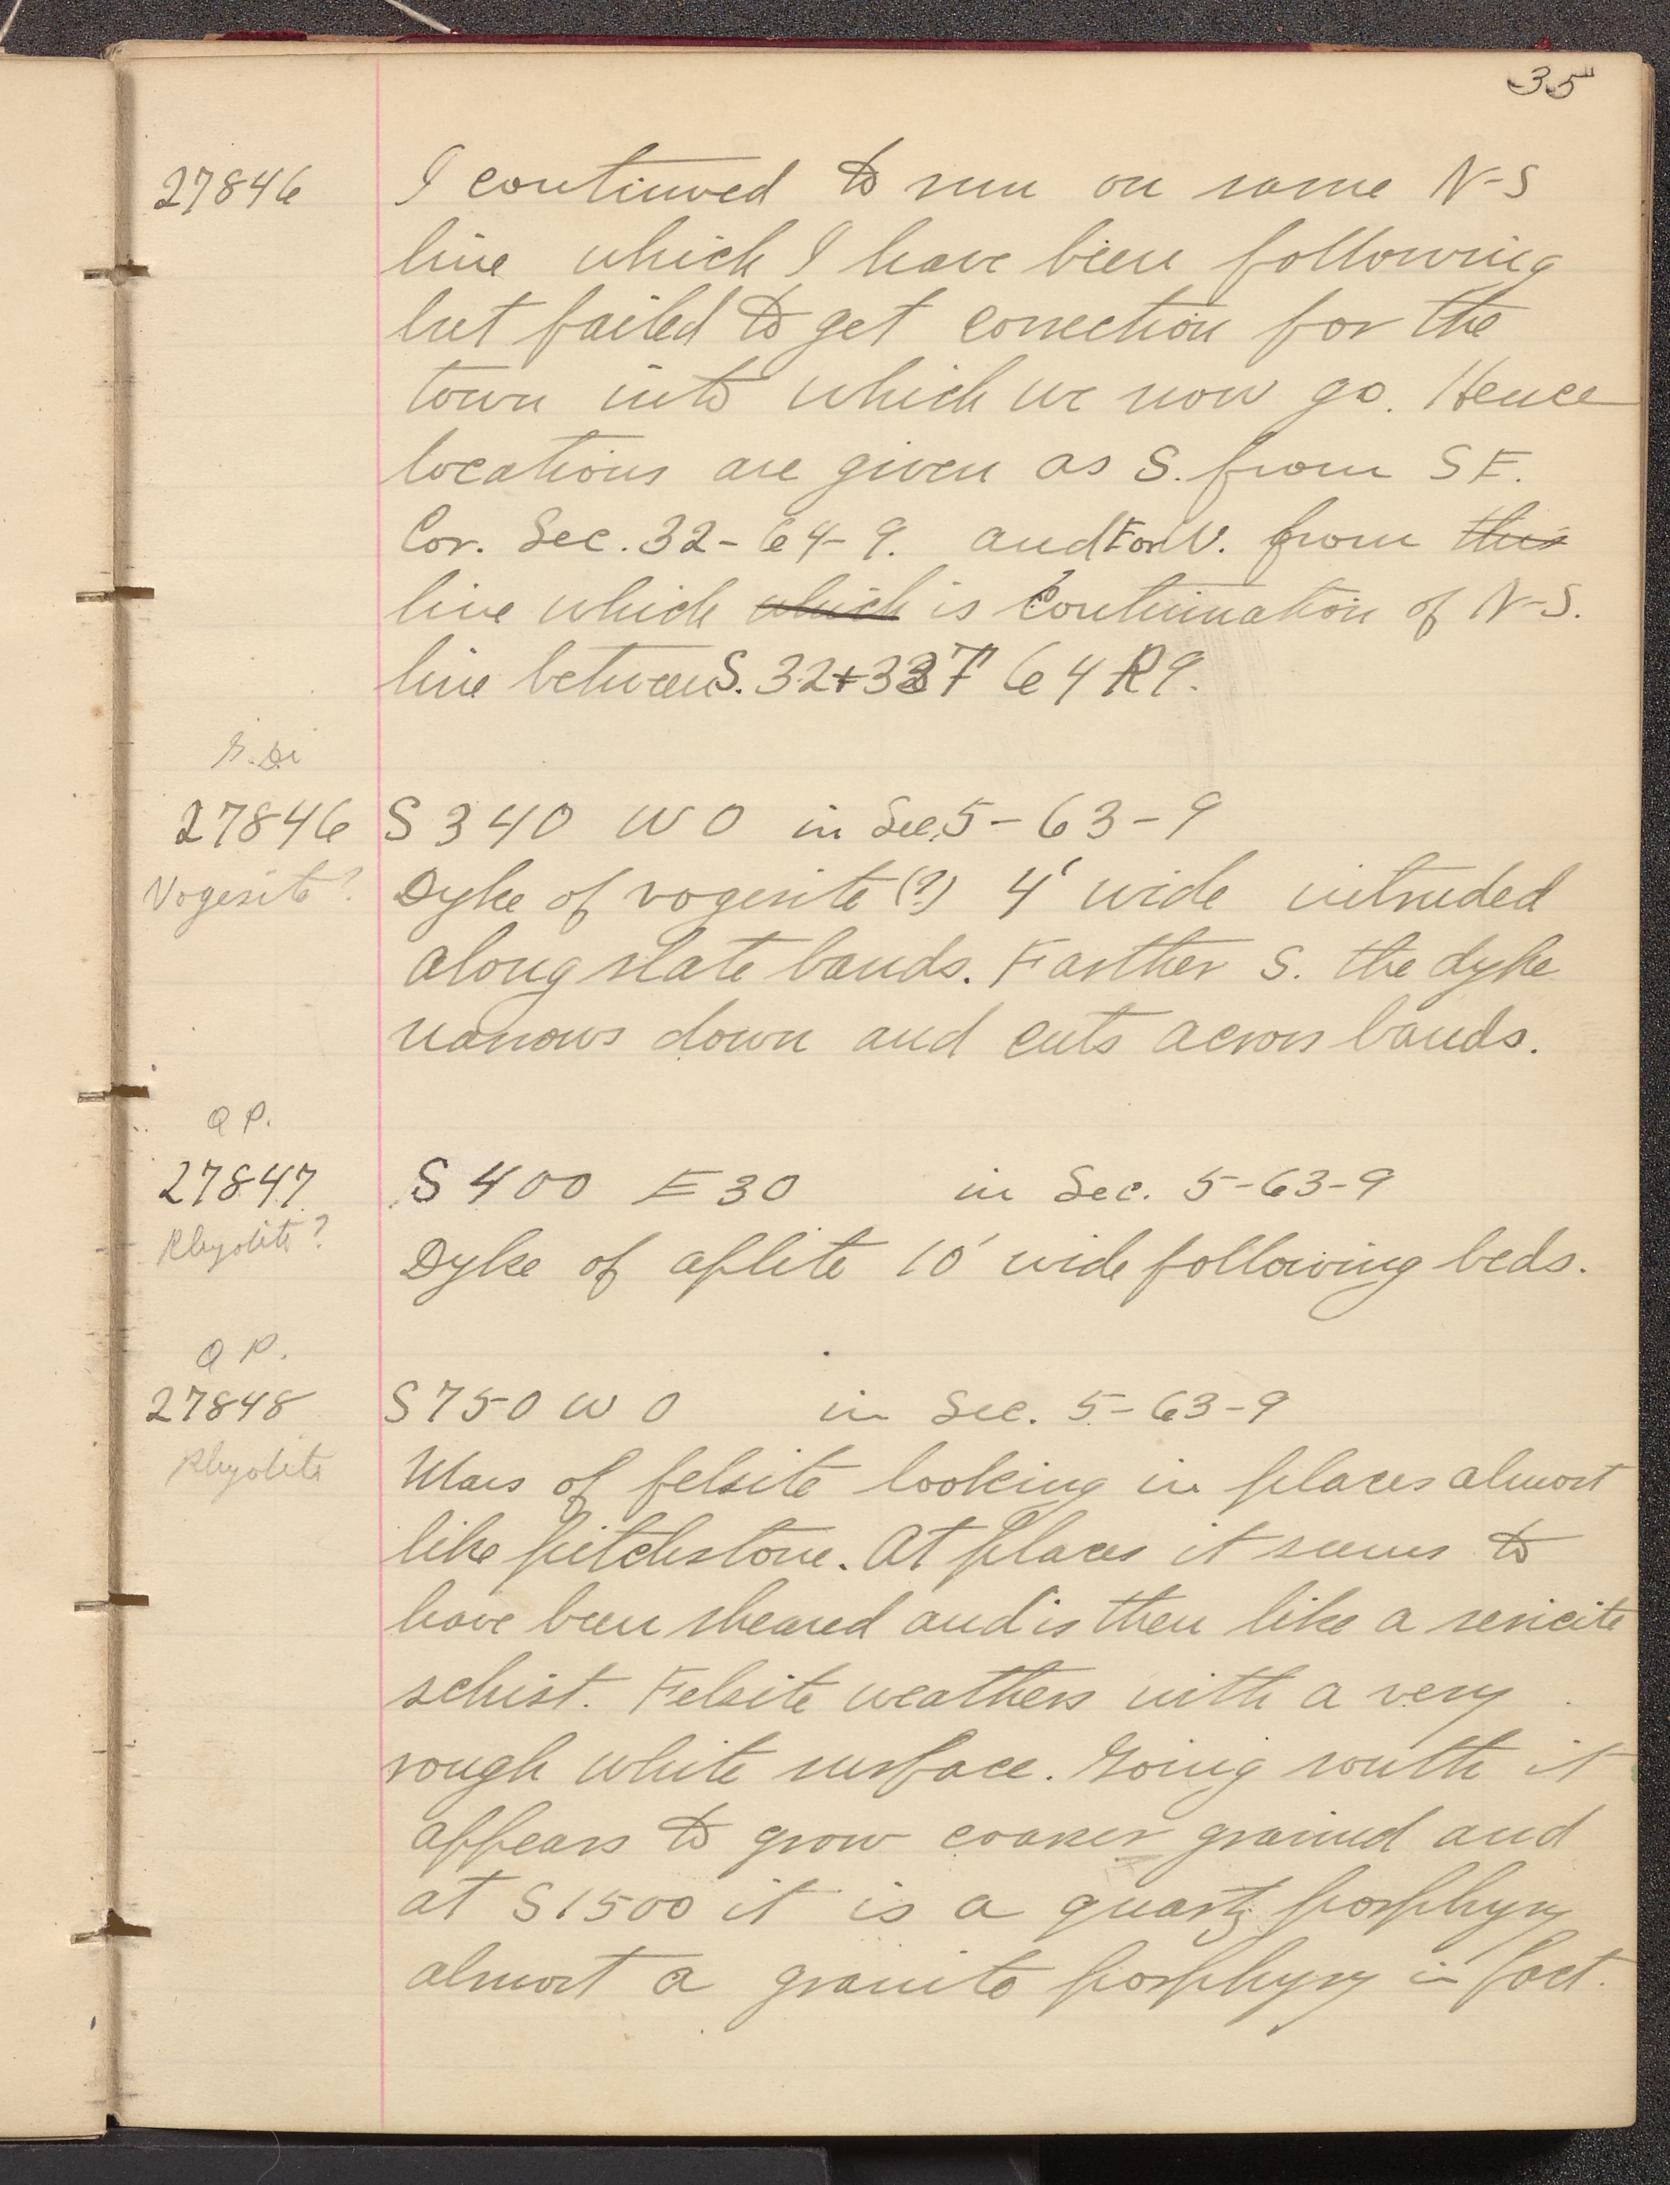 35
27846 I continued to run on same N-S
line which I have been following
but failed to get correction for the
town into which we now go. Hence
locations are given as S. from SE.
Cor. Sec. 32-64-9. and E or W. from this
line which which is continuation of N-S.
line between S. 32+33 T 64 R9.
27846 S 340 W 0 in Sec. 5-63-9
Vogesite? Dyke of vogesite (?) 4' wide intruded
along slate bands. Farther S. the dyke
narrows down and cuts across bands.
Q P.
27847 S 400 E 30 in Sec. 5-63-9
Rhyolite?
Dyke of aplite 10' wide following beds.
Q P.
27848 S 750 W 0 in Sec. 5-63-9
Rhyolite Mass of felsite looking in places almost
like pitchstone. At places it seems to
have been sheared and is then like a sericite
schist. Felsite weathers with a very
rough white surface. Going south it
appears to grow coarser grained and
at S 1500 it is a quartz porphyry
almost a granite porphyry in fact.